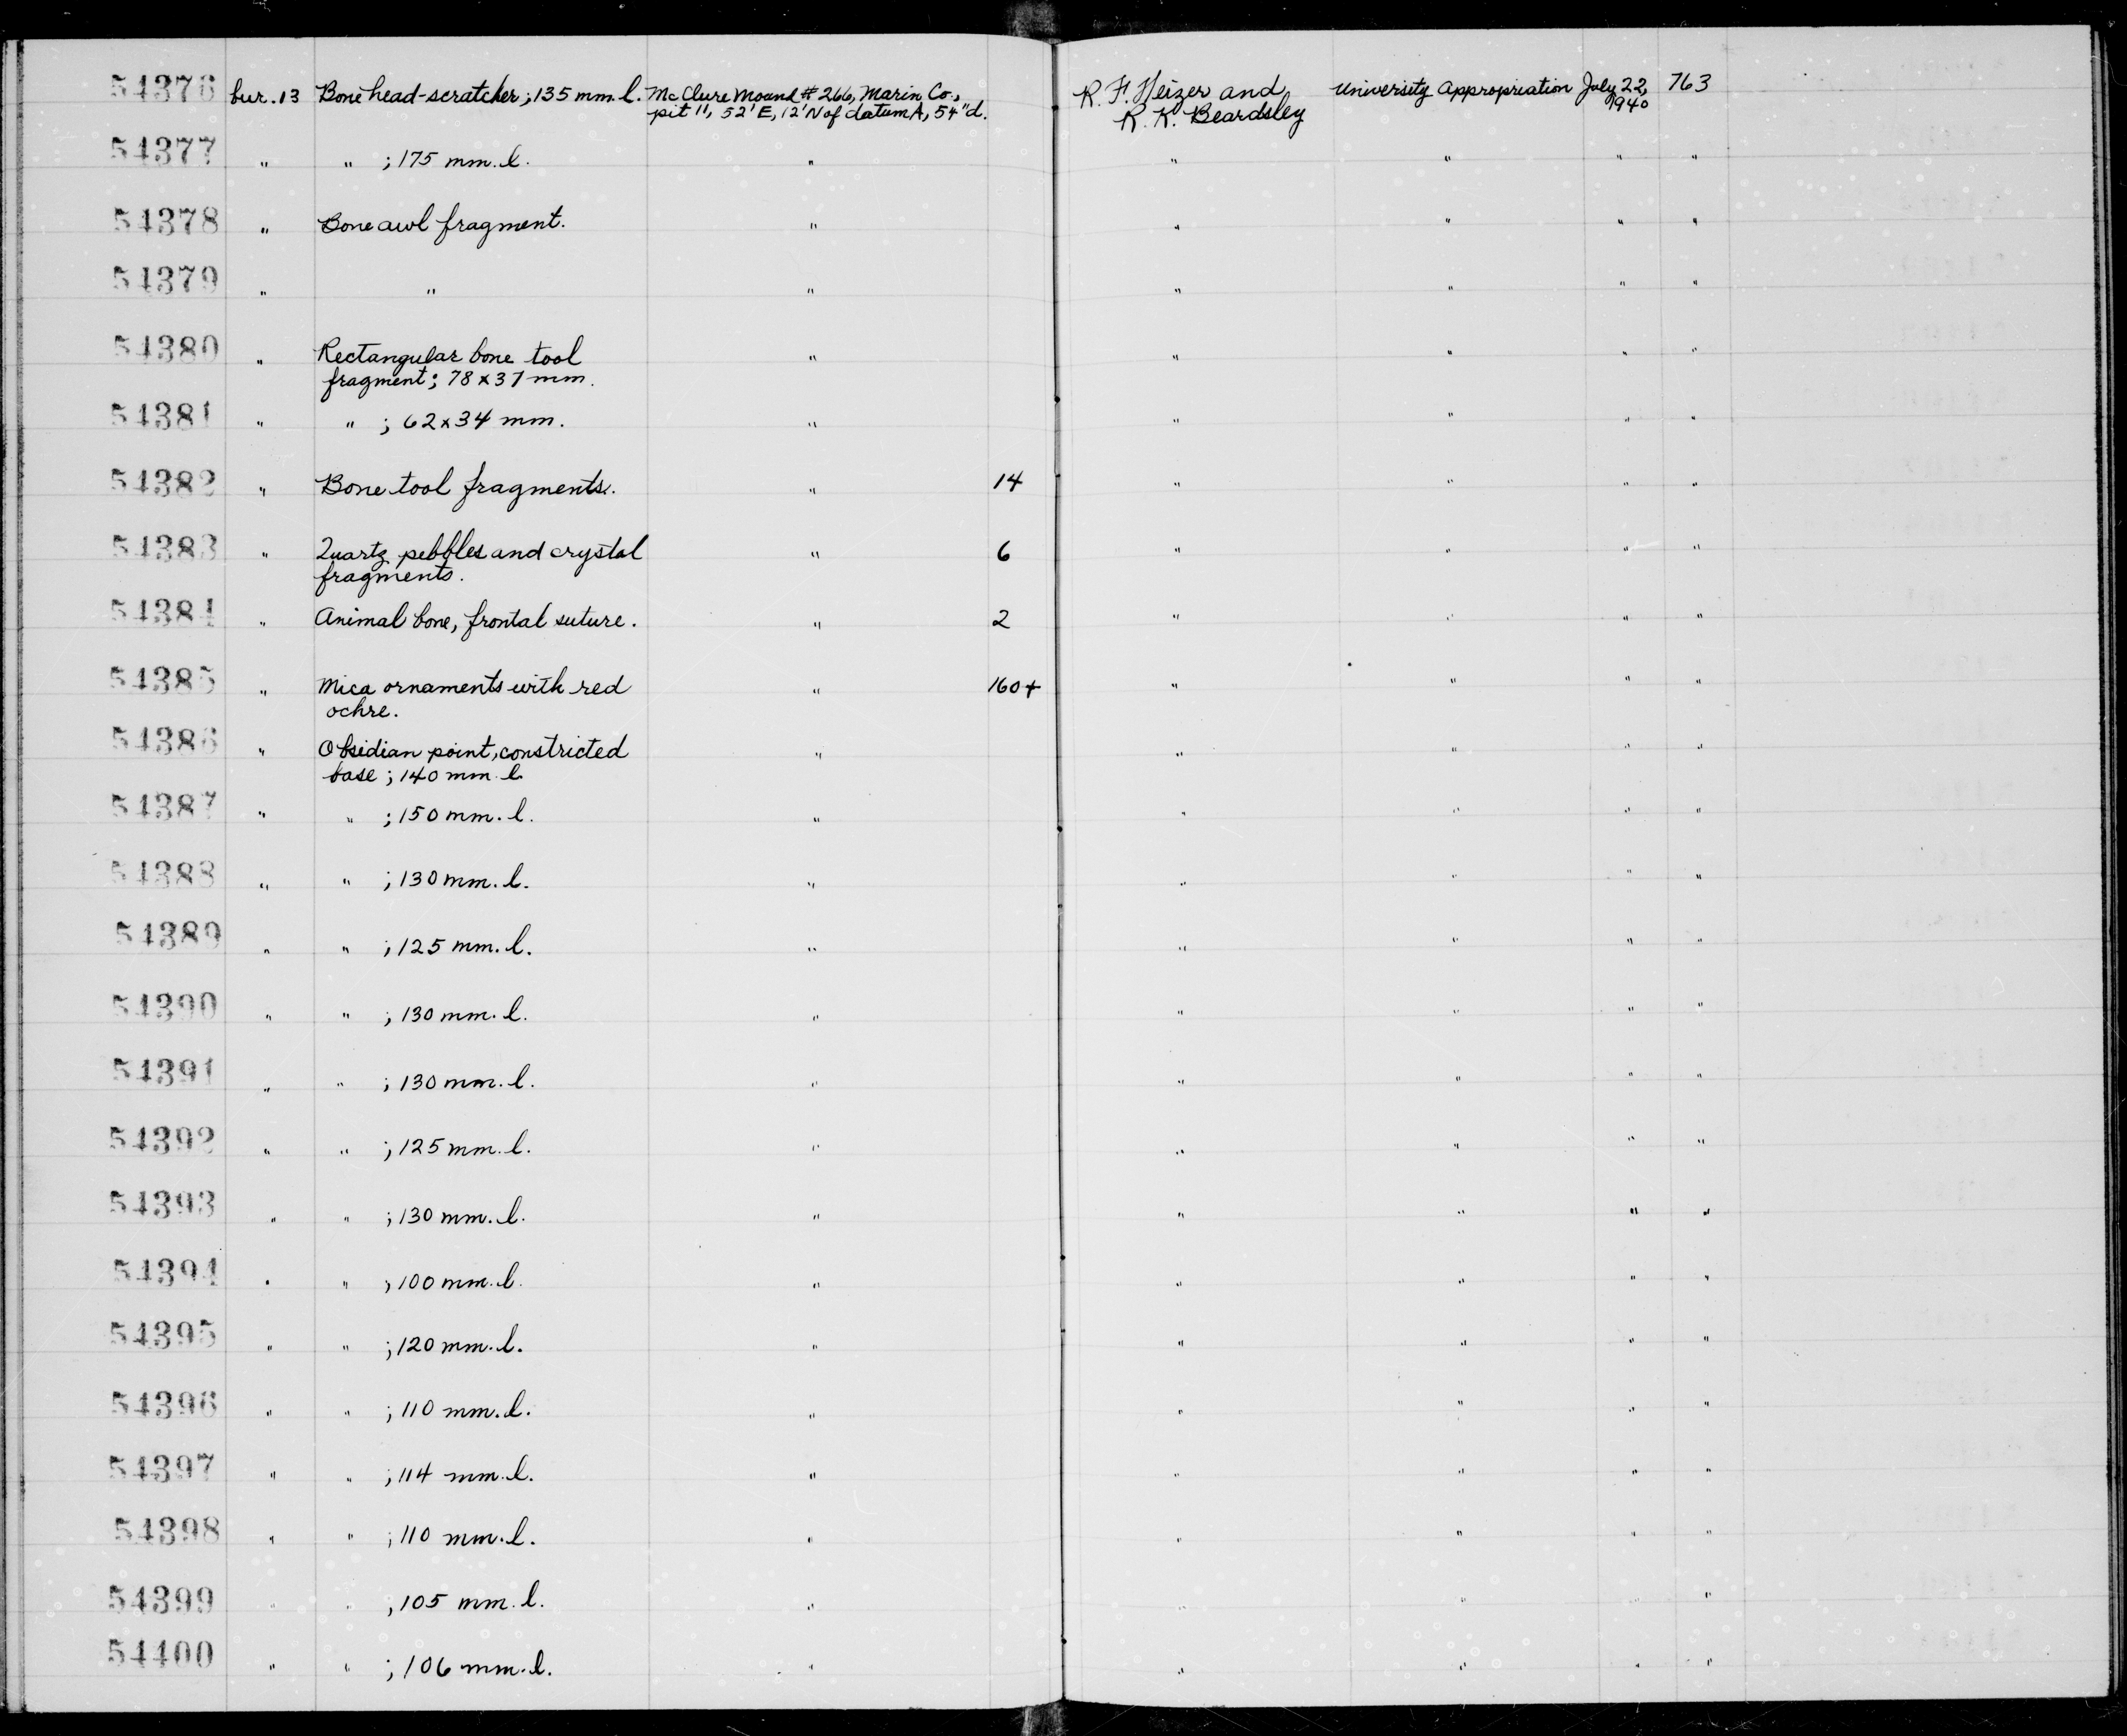 54376 bur.13 Bone head-scratcher; 135 mm. l. McClure Mound #266, Marin Co., R. F. Heizer and University Appropriation July 22, 763
pit 11, 52' E, 12' N of datum A, 54" d. R. K. Beardsley 1940
54377 " " ; 175 mm. l. " " " " "
54378 " Bone awl fragment. " " " " "
54379 " " " " " " "
54380 " Rectangular bone tool " " " " "
fragment; 78 x 37 mm.
54381 " " ; 62 x 34 mm. " " " " "
54382 " Bone tool fragments. " 14 " " " "
54383 " Quartz pebbles and crystal " 6 " " " "
fragments.
54384 " Animal bone, frontal suture. " 2 " " " "
54385 " Mica ornaments with red " 160+ " " " "
ochre.
54386 " Obsidian point, constricted " " " " "
base; 140 mm. l
54387 " " ; 150 mm. l. " " " " "
54388 " " ; 130 mm. l. " " " " "
54389 " " ; 125 mm. l. " " " " "
54390 " " ; 130 mm. l. " " " " "
54391 " " ; 130 mm. l. " " " " "
54392 " " ; 125 mm. l. " " " " "
54393 " " ; 130 mm. l. " " " " "
54394 " " ; 100 mm. l. " " " " "
54395 " " ; 120 mm. l. " " " " "
54396 " " ; 110 mm. l. " " " " "
54397 " " ; 114 mm. l. " " " " "
54398 " " ; 110 mm. l. " " " " "
54399 " " ; 105 mm. l. " " " " "
54400 " " ; 106 mm. l. " " " " "